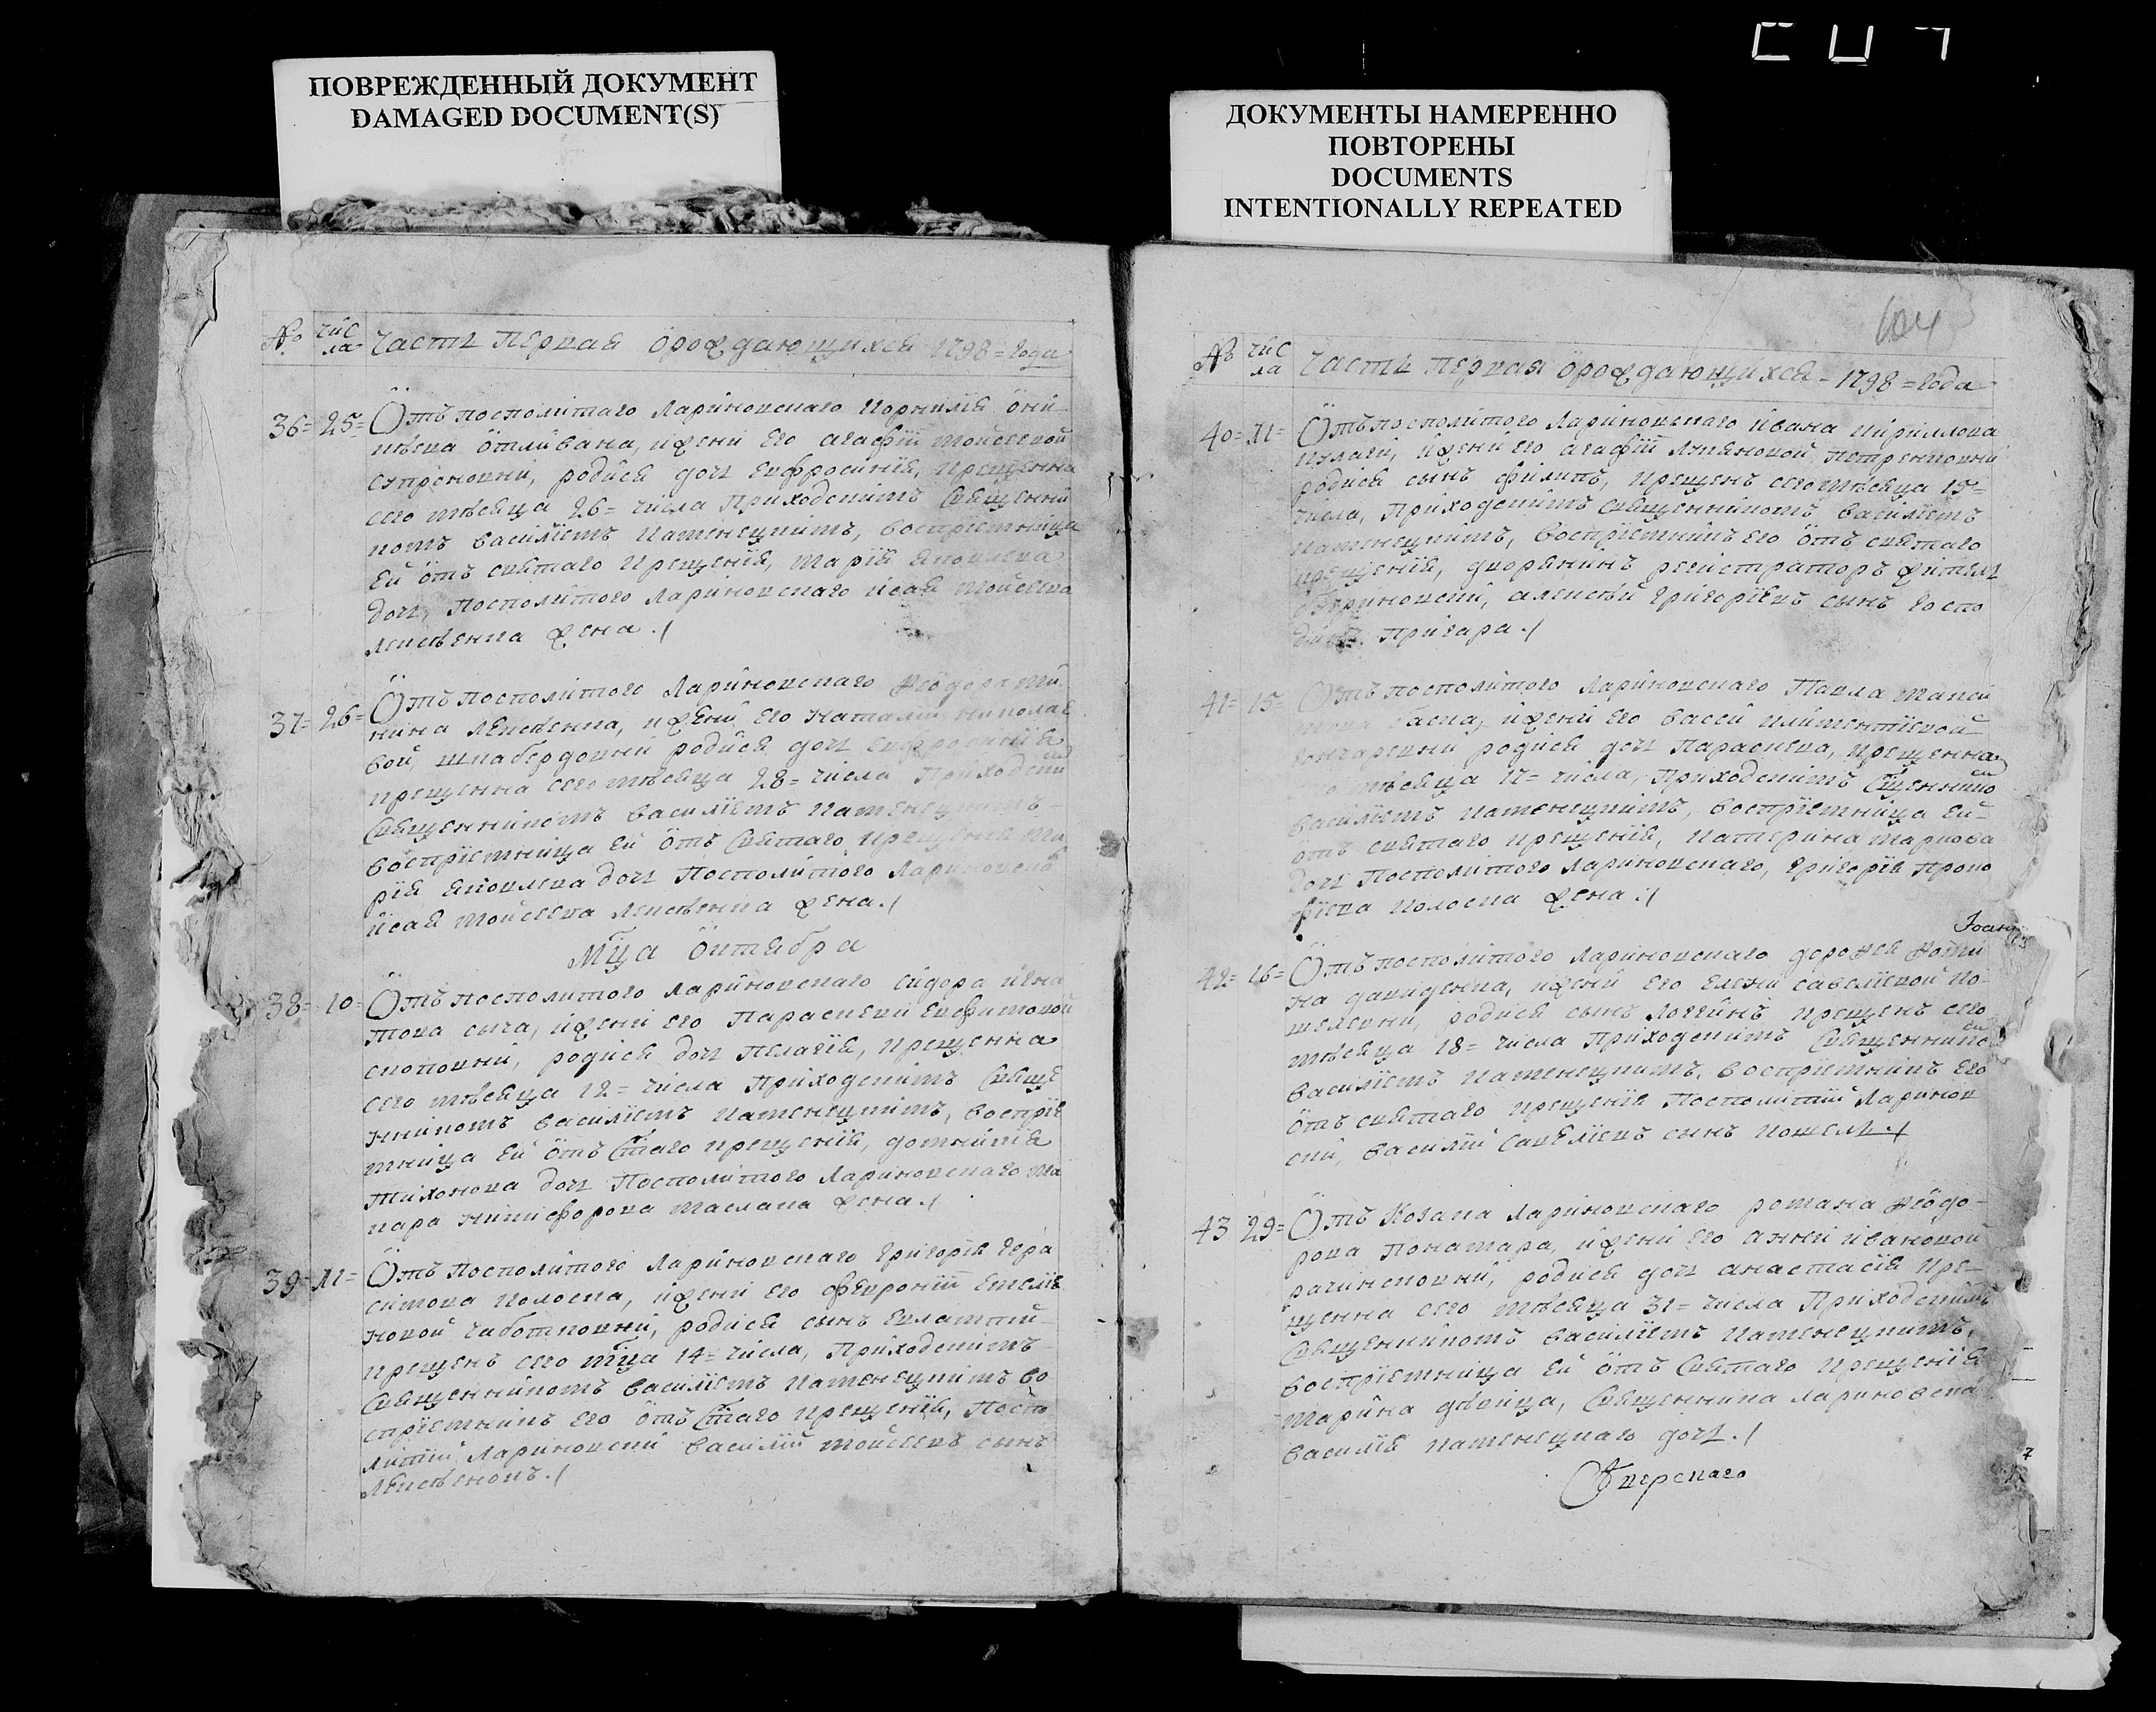 ПОВРЕЖДЕННЫЙ ДОКУМЕНТ
DAMAGED DOCUMENT(S)
ДОКУМЕНТЫ НАМЕРЕННО
ПОВТОРЕНЫ
DOCUMENTS
INTENTIONALLY REPEATED
№ числа Часть Первая о рождающихся 1798 = года
36 = 25 = Отъ посполитаго Лариновскаго Корнилія
Отливана, и жени его Агафіи Мойсеевой
Супроновни, родися дочь Евфросинія, крещенна
сего мѣсяца 26 = числа Приходскимъ Священни
комъ Василіемъ Каменецкимъ, воспріемница
ей отъ святаго крещенія, Марія Яковлева
дочь, посполитого Лариновскаго Исая Мойсеева
жена ./
37 = 26 = Отъ посполитого Лариновскаго Ѳеодора Ми
нина, и жени его Наталіи Николае
вой, родися дочь Евфросинія
крещенна сего мѣсяца 28 = числа Приходски
Священникомъ Василіемъ Каменецкимъ
воспріемница ей отъ Святаго крещенія Ма
рія Яковлева дочь Посполитого Лариновска
Исая Мойсеева жена ./
Мца Октября
38 = 10 = Отъ посполитого Лариновскаго Сидора Игна
това Сича, и жени его Параскеви Евфимовой
родися дочь Пелагія, крещенна
сего мѣсяца 12 = числа Приходскимъ Свяще
нникомъ Василіемъ Каменецкимъ, воспріе
мница ей отъ Стаго крещенія, Домникія
Тихонова дочь Посполитого Лариновскаго Ма
кара Никифорова Маслака жена ./
39 = 11 = Отъ Посполитого Лариновскаго Григорія Гера
симова Колоска, и жени его Февроніи Емелія
новой Чаботковни, родися сынъ Евлампий
крещенъ сего мца 14 = числа, Приходскимъ
Священникомъ Василіемъ Каменецкимъ во
спріемникъ его отъ Стаго крещенія, Поспо
литий Лариновский Василій Мойсеевъ сынъ
№ числа Часть Первая о рождающихся - 1798 = года
40 = 11 = Отъ посполитого Лариновскаго Ивана Кириллова
Кулаги, и жени его Агафіи Лукяновой Петренковни
родися сынъ Филипъ, крещенъ сего мѣсяца 15 =
числа, Приходскимъ священникомъ Василіемъ
Каменецкимъ, воспріемникъ его отъ святаго
крещенія, дворянинъ регистраторъ житель
Лариновский, Алексѣй Григоріевъ сынъ госпо
динъ Пригара ./
41 = 15 = Отъ посполитого Лариновскаго Павла
и жени его Васси Климентіевой
Гончаревни родися дочь Параскева, крещенна
мѣсяца 17 = числа, Приходскимъ Сщеннико
Василіемъ Каменецкимъ, воспріемница ей
отъ святаго крещенія, Катерина Маркова
дочь Посполитого Лариновскаго, Григорія Проко
фіева Колоска жена ./
42 = 16 = Отъ посполитого Лариновскаго
на Давиденка, и жени его Елени Савеліевой Ко
шелевни, родися сынъ Логгинъ крещенъ сего
мѣсяца 18 = числа Приходскимъ Священнико
Василіемъ Каменецкимъ, воспріемникъ его
отъ святаго крещенія Посполитий Ларинов
ский, Василій Савеліевъ сынъ Кошель ./
43 29 = Отъ Козака Лариновскаго Романа Ѳеодо
рова Понамара, и жени его Анни Ивановой
Рачинсковни, родися дочь Анастасія кре
щенна сего мѣсяца 31 = числа Приходскимъ
Священникомъ Василіемъ Каменецкимъ,
воспріемница ей отъ Святаго крещенія
Марина дѣвица, Священника Лариновска
Василія Каменецкаго дочь ./